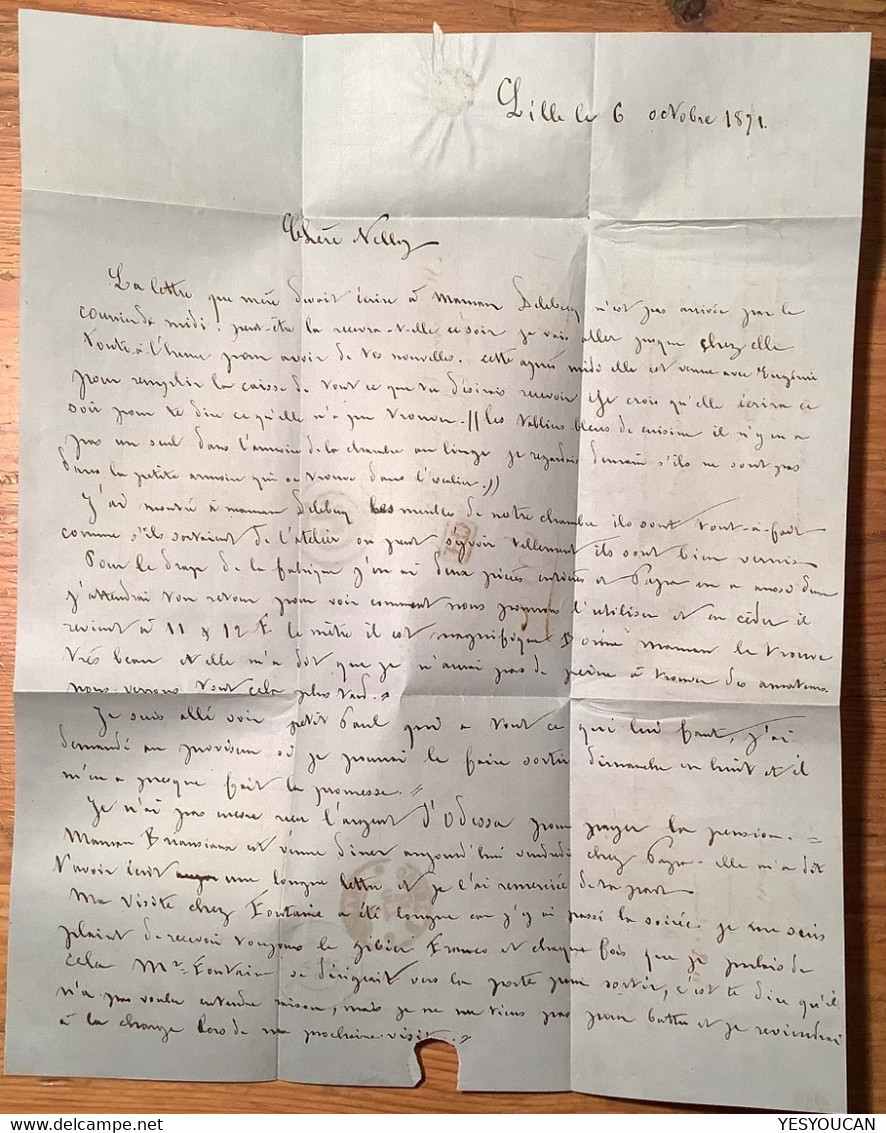 Lille le 6 octobre 1871.
Chère Nelly
La lettre que mère devait écrire à Maman Delebecq n'est pas arrivée par le
courrier de midi : peut-être la recevra-t-elle ce soir je vais aller jusque chez elle
tout-à-l'heure pour avoir de tes nouvelles. cette après midi elle est venue avec Eugénie
pour remplir la caisse de tout ce que tu désirais recevoir et je crois qu'elle écrira ce
soir pour te dire ce qu'elle n'a pu trouver. // les tabliers bleus de cuisine il n'y en a
pas un seul dans l'armoire de la chambre au linge je regarderai demain s'ils ne sont pas
dans la petite armoire qui se trouve dans l'escalier. //
J'ai montré à maman Delebecq les meubles de notre chambre ils sont tout-à-fait
comme s'ils sortaient de l'atelier on peut s'y voir tellement ils sont bien vernis
Pour le drap de la fabrique j'en ai deux pièces entières et Papa en a aussi deux
j'attendrai ton retour pour voir comment nous pourrons l'utiliser et en céder il
revient à 11 à 12 F le mètre il est magnifique Bonne maman le trouve
très beau et elle m'a dit que je n'aurai pas de peine à trouver des amateurs
nous verrons tout cela plus tard. //
Je suis allé voir petit Paul qui a tout ce qui lui faut, j'ai
demandé au proviseur si je pourrai le faire sortir dimanche en huit et il
m'en a presque fait la promesse. //
Je n'ai pas encore reçu l'argent d'Odessa pour payer la pension. =
Maman est venue diner aujourd'hui vendredi chez Papa. elle m'a dit
t'avoir écrit une longue lettre et je l'ai remerciée de ta part
Ma visite chez Fontaine a été longue car j'y ai passé la soirée. je me suis
plaint de recevoir toujours le gibier Franco et chaque fois que je parlais de
cela Mr. Fontaine se dirigeait vers la porte pour sortir, c'est te dire qu'il
n'a pas voulu entendre raison, mais je ne me tiens pas pour battu et je reviendrai
à la charge lors de ma prochaine visite. //
YESYOUCAN